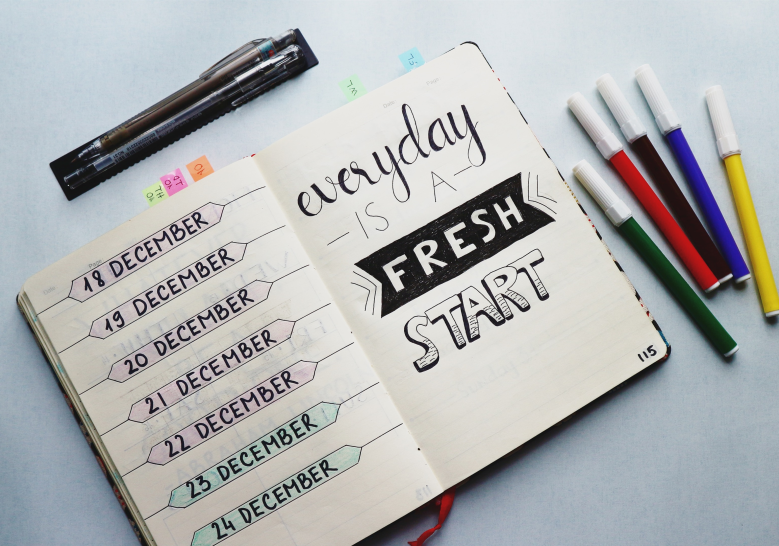 18 DECEMBER
19 DECEMBER
20 DECEMBER
21 DECEMBER
22 DECEMBER
23 DECEMBER
24 DECEMBER
everyday
—IS A—
FRESH
START
115